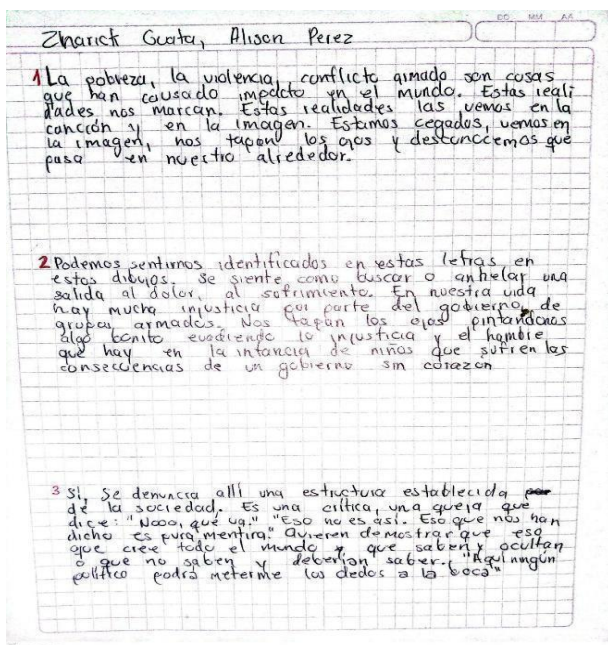 DD MM AA
Zharick Guata, Alison Perez
1 La pobreza, la violencia, conflicto armado son cosas
que han causado impacto en el mundo. Estas reali
dades nos marcan. Estas realidades las vemos en la
canción y en la imagen. Estamos cegados, vemos en
la imagen, nos tapan los ojos y desconocemos que
pasa en nuestro alrededor.
2 Podemos sentirnos identificados en estas letras en
estos dibujos. Se siente como buscar o anhelar una
salida al dolor, al sofrimiento. En nuestra vida
hay mucha injusticia por parte del gobierno, de
grupos armados. Nos tapan los ojos pintandonos
algo bonito evadiendo la injusticia y el hambre
que hay en la infancia de niños que sufren las
consecuencias de un gobierno sin corazon
3 Si, Se denuncia allí una estructura establecida por
de la sociedad. Es una crítica, una queja que
dice: "Nooo, qué va." "Eso no es así. Eso que nos han
dicho es pura mentira." Quieren demostrar que eso
que cree todo el mundo y que saben y ocultan
o que no saben y deberían saber. "Aquí ningún
político podrá meterme los dedos a la boca"